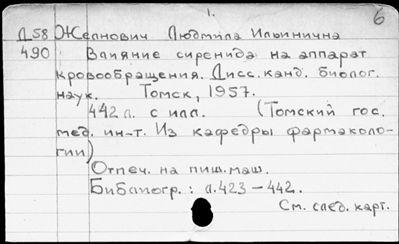 1.
6
Д 58 Желнович Людмила Ильинична
490 Влияние сиренида на аппарат
кровообращения. Дисс. канд. биолог.
наук. Томск, 1957.
442 л. с илл. (Томский гос.
мед. ин-т. Из кафедры фармаколо-
гии)
Отпеч. на пиш. маш.
Библиогр.: л. 423-442.
См. след. карт.